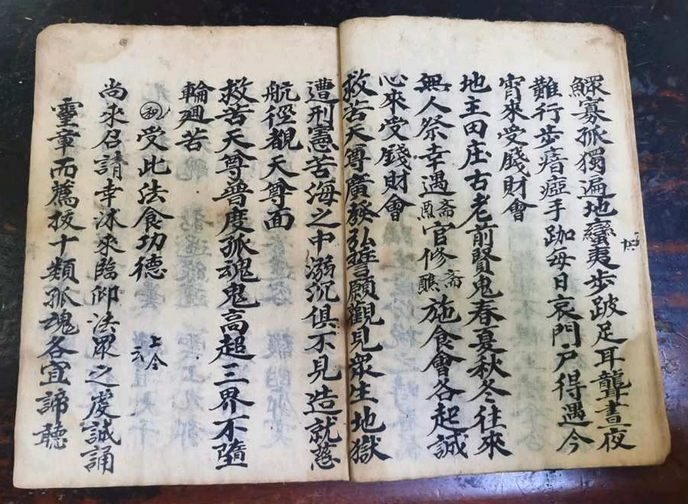 鰥寡孤獨遍地蠻夷步跛足耳聾晝夜
難行步瘖瘂手跏每日哀門户得遇今
宵來受錢財會
地主田庄古老前賢鬼春夏秋冬往來
無人祭幸遇齋官修齋醮施食會各起誠
心來受錢財會
救苦天尊廣發弘誓願觀見衆生地獄
遭刑憲苦海之中溺沉俱不見造就慈
航徑覩天尊面
救苦天尊普度孤魂鬼高超三界不墮
輪廻苦
受此法食功德
尚來召請幸沐來臨仰法眾之虔誠誦
靈章而薦拔十類孤魂各宜諦聽